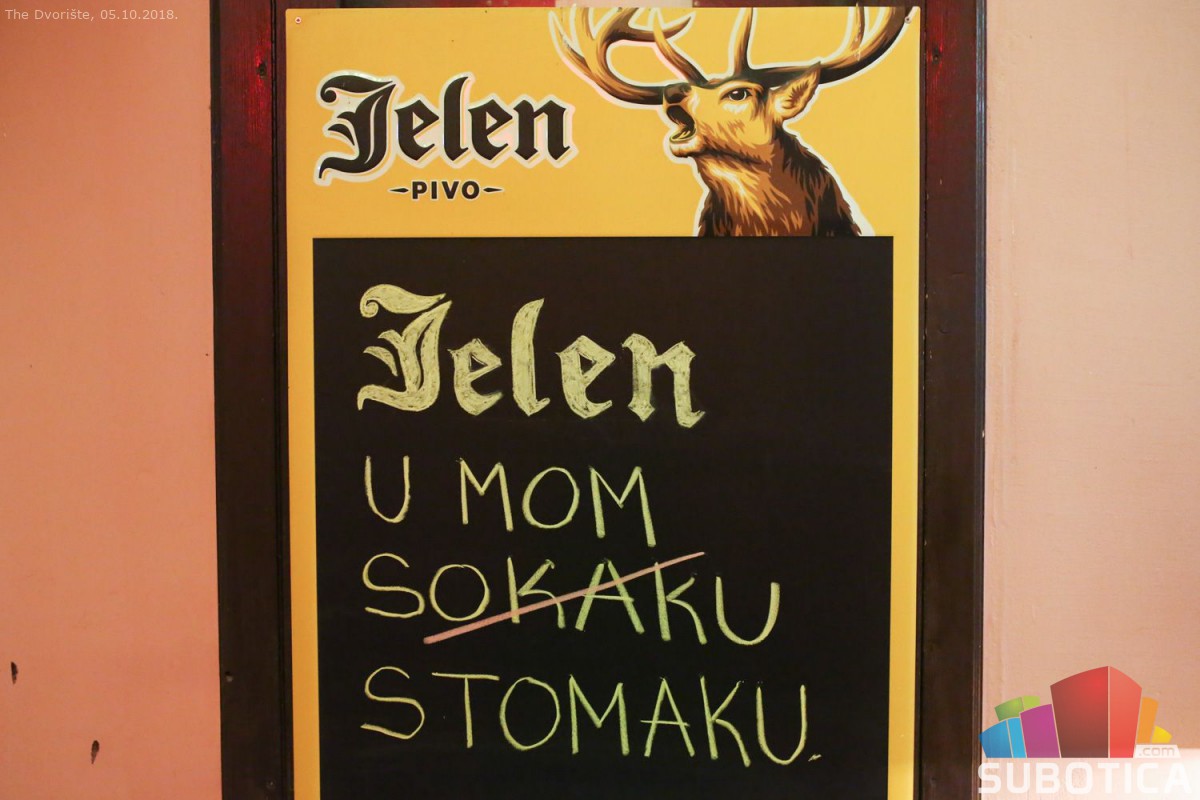 The Dvorište, 05.10.2018.
Jelen
PIVO
Jelen
U MOM
SOKAKU
STOMAKU.
SUBOTICA
.com